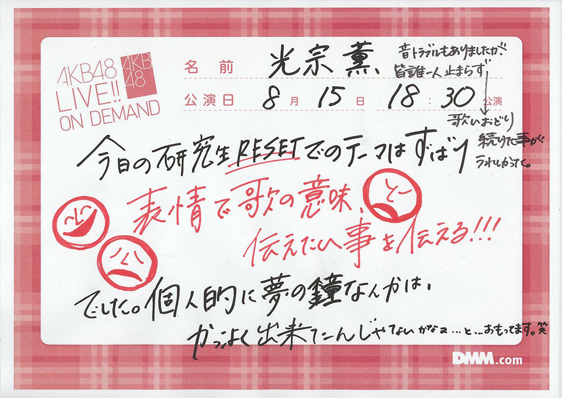 AKB48
LIVE!!
ON DEMAND
AKB
48
名前 光宗薫
公演日 8月15日 18:30公演
音トラブルもありましたが、
皆誰一人止まらず
歌いおどり
続けた事が
うれしかった。
今日の研究生RESETでのテーマはずばり
表情で歌の意味、
伝えたい事を伝える!!!
でした。個人的に夢の鐘なんかは、
かっこよく出来てたんじゃないかなぁ…と…おもってます。笑
DMM.com